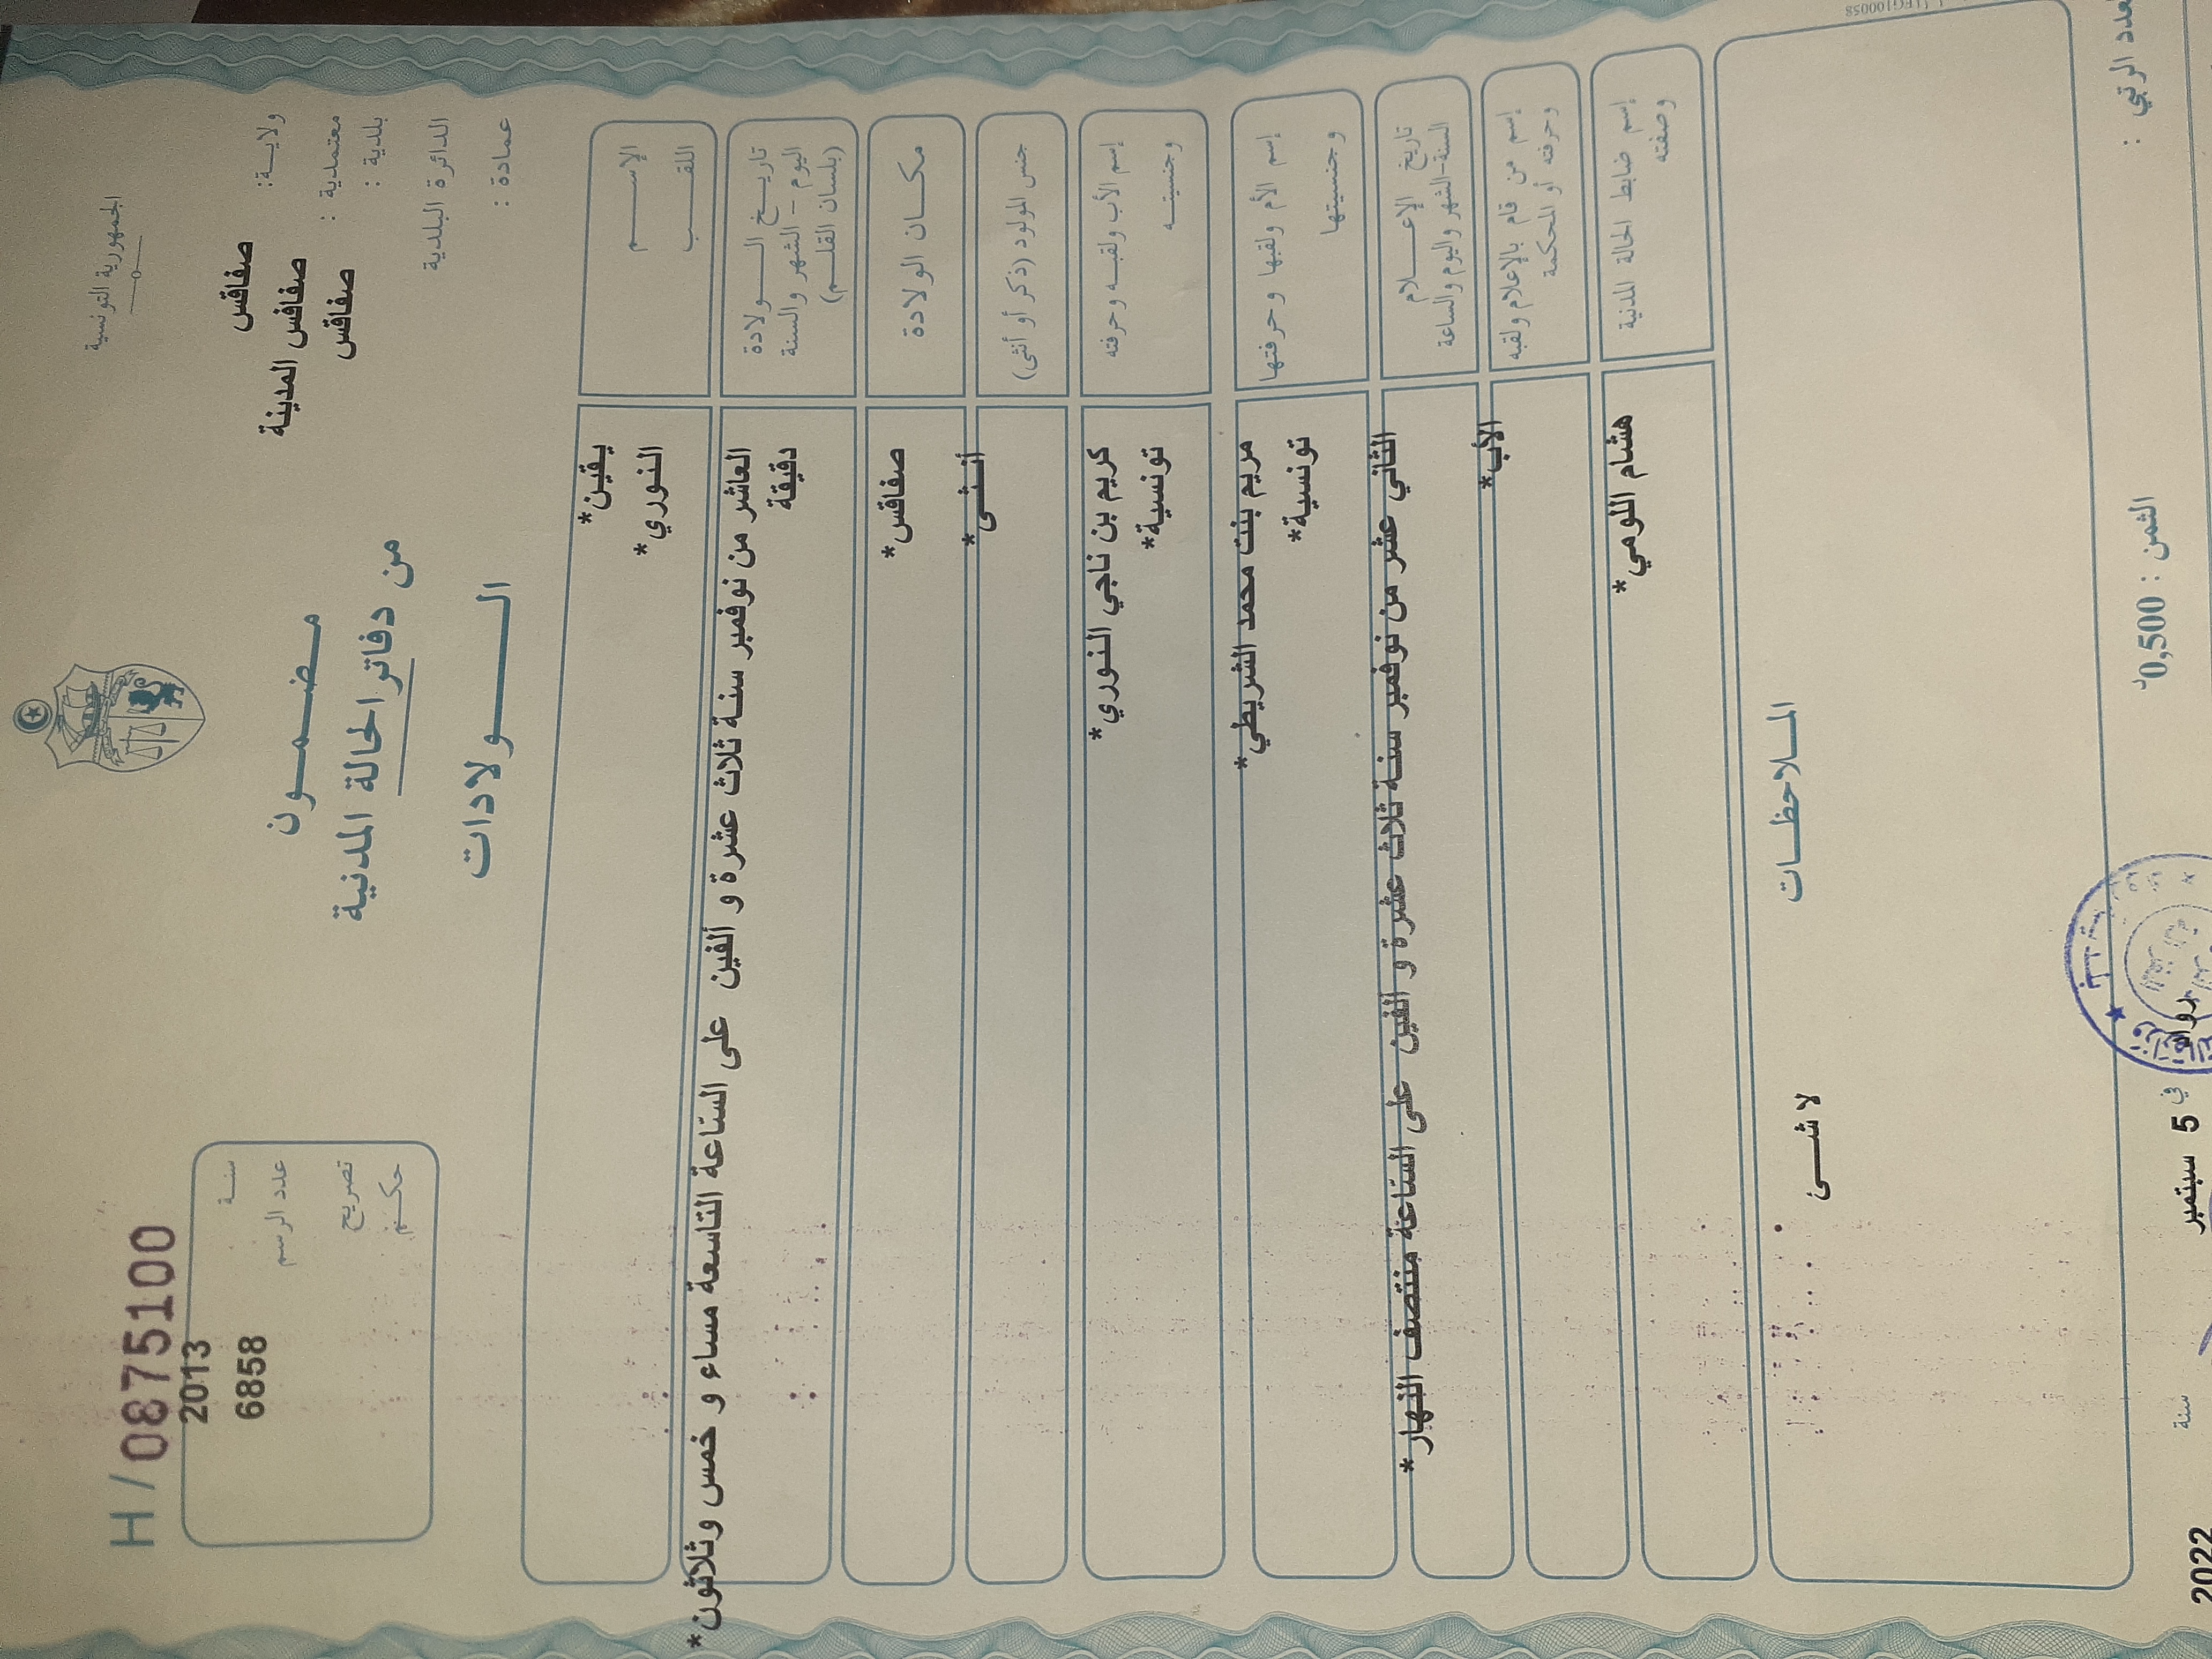 الجمهورية التونسية
ولاية: صفاقس
معتمدية : صفاقس المدينة
بلدية : صفاقس
الدائرة البلدية
عمادة :
H / 0875100
سنة 2013
عدد الرسم 6858
تصريح
حكم
مضمون
من دفاتر الحالة المدنية
الولادات
الإسم يقين*
اللقب النوري*
تاريخ الولادة
اليوم - الشهر والسنة
(بلسان القلم)
العاشر من نوفمبر سنة ثلاث عشرة و ألفين على الساعة التاسعة مساء و خمس وثلاثون*
دقيقة
مكان الولادة صفاقس*
جنس المولود (ذكر أو أنثى) أنثى*
إسم الأب ولقبه وحرفته كريم بن ناجي النوري*
وجنسيته تونسية*
إسم الأم ولقبها وحرفتها مريم بنت محمد الشريطي*
وجنسيتها تونسية*
تاريخ الإعلام
السنة-الشهر واليوم والساعة
الثاني عشر من نوفمبر سنة ثلاث عشرة و ألفين على الساعة منتصف النهار*
إسم من قام بالإعلام ولقبه
وحرفته أو المحكمة
الأب*
إسم ضابط الحالة المدنية
وصفته
هشام اللومي*
الملاحظات
لا شئ
العدد الرتبي :
الثمن : 0,500د
في 5 سبتمبر سنة 2022